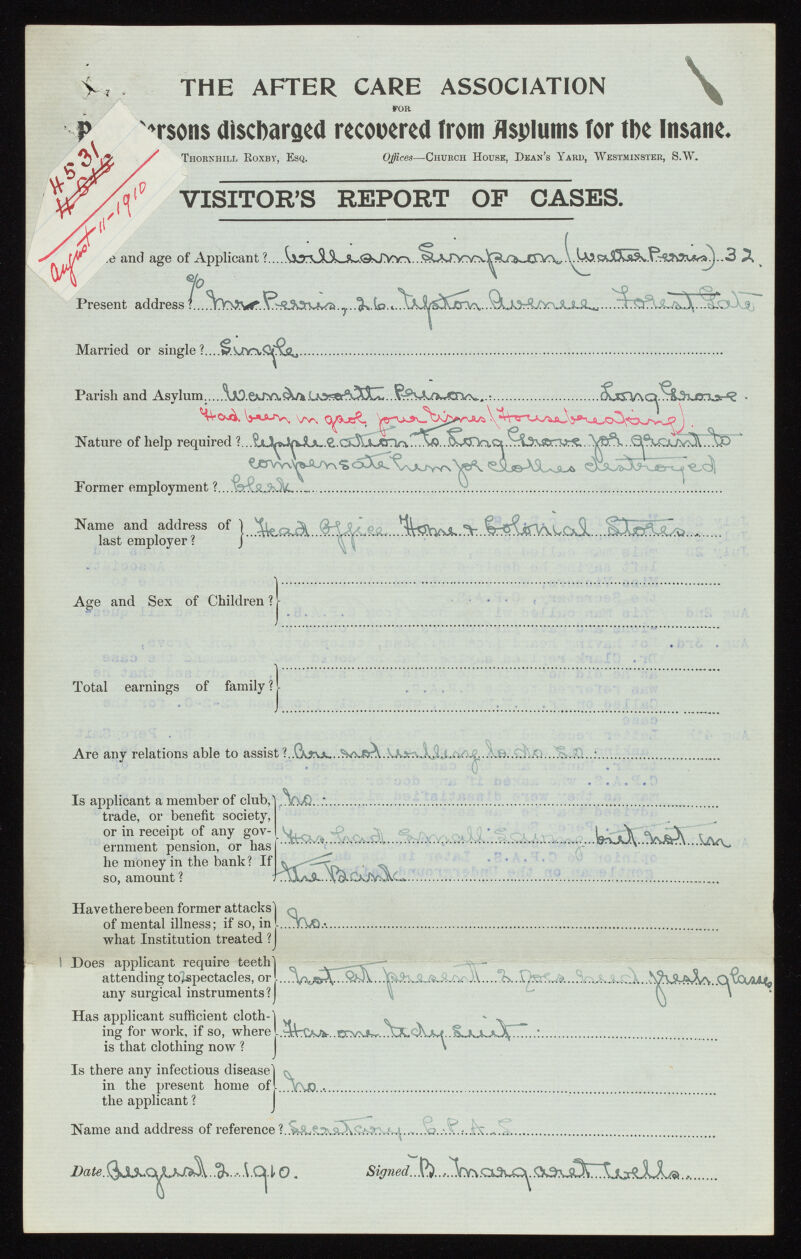 THE AFTER CARE ASSOCIATION
FOR
rsons discharged recovered from Asylums for the Insane.
Thornhill Roxby, Esq. Offices—Church House, Dean's Yard, Westminster, S.W.
4531
4515
August 11-1910
VISITOR'S REPORT OF CASES.
e and age of Applicant? William Simpson (Walter Perris) 32.
c/o
Present address? Mrs Perris, 26. Upton Avenue Forest Gate
Married or single? Single
Parish and Asylum Wandsworth Prison. Long Grove.
Had been in gaol four times (Housebreaking).
Nature of help required? Application to Long Grove for grant to
compensate him for clothes destroyed
Former employment? Clerk
Name and address of last employer? Head Office Home & Colonial Stores.
Age and Sex of Children?
Total earnings of family?
Are any relations able to assist? Are not willing to do so.
Is applicant a member of club, No.
trade, or benefit society,
or in receipt of any gov- Has had small saving but not in
ernment pension, or has
he money in the bank? If the Bank
so, amount?
Have there been former attacks
of mental illness; if so, in No.
what Institution treated?
Does applicant require teeth
attending to, spectacles, or not at present & does need fresh glasses
any surgical instruments?
Has applicant sufficient cloth-
ing for work, if so, where Has one tidy suit.
is that clothing now?
Is there any infectious disease
in the present home of No.
the applicant?
Name and address of reference? Secretary C.P.A.S
Date August 2. 1910. Signed B. Margaret Wells.